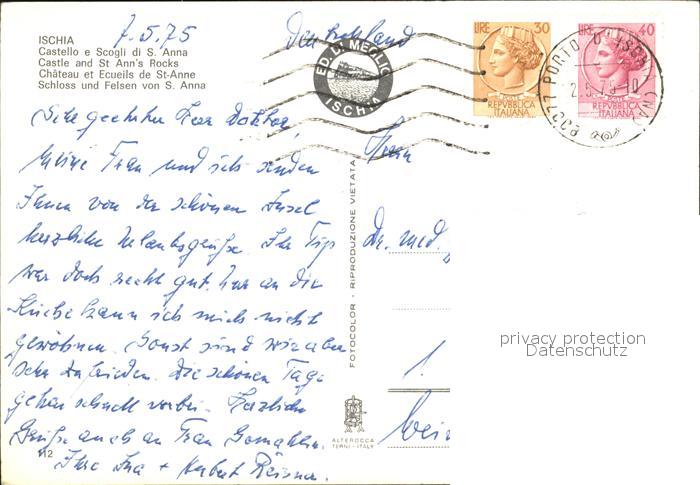 7.5.75
Deutschland
ISCHIA
Castello e Scogli di S. Anna
Castle and St Ann's Rocks
Château et Ecueils de St-Anne
Schloss und Felsen von S. Anna
ED. D. MEGLIO
ISCHIA
LIRE 30
POSTE
REPVBBLICA
ITALIANA
LIRE 40
REPVBBLICA
ITALIANA
80077 PORTO D'ISCHIA (NA)
Sehr geehrter Herr Doktor,
Meine Frau und ich senden
Ihnen von der schönen Insel
herzliche Urlaubsgrüße. Ihr Tip
war doch recht gut. Nur an die
Küche kann ich mich nicht
gewöhnen. Sonst sind wir aber
sehr zufrieden. Die schönen Tage
gehen schnell vorbei. Herzliche
Grüße auch an Frau Gemahlin.
Ihre + Herbert
112
Herrn
Dr. med.
1.
FOTOCOLOR - RIPRODUZIONE VIETATA
ALTEROCCA
TERNI - ITALY
privacy protection
Datenschutz